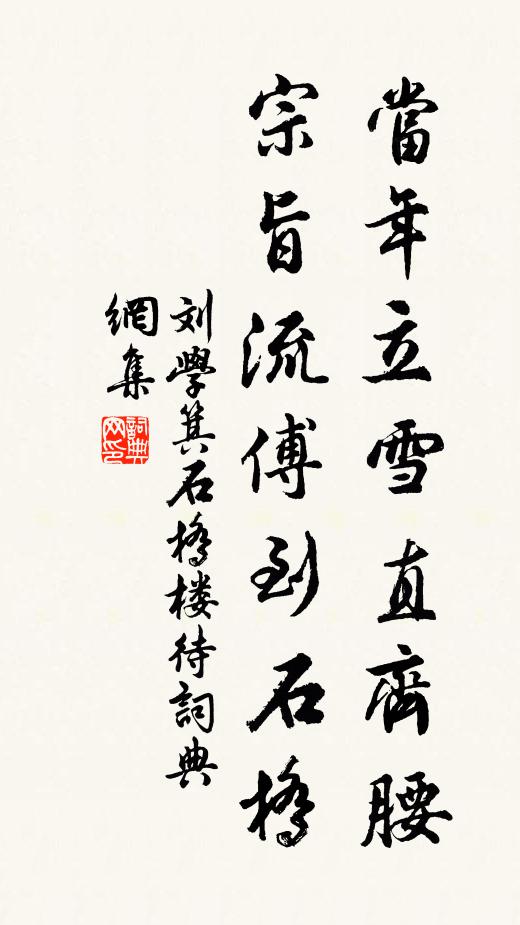 當年立雪直齊腰
宗旨流傅到石橋
刘學箕石橋楼待詞典
網集
詞典网印